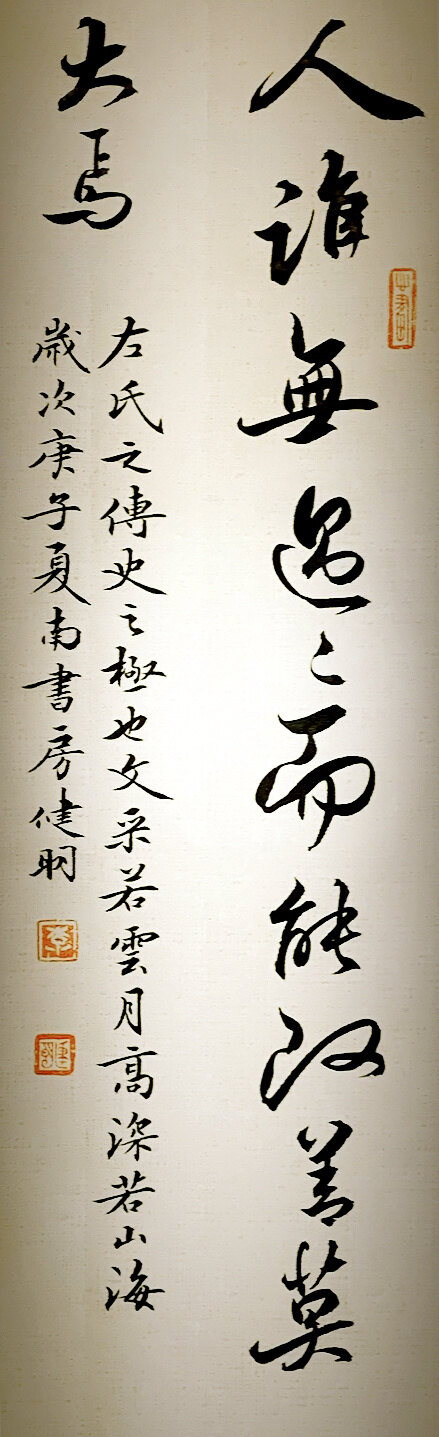 人誰無過〻而能改善莫
大焉
左氏之傳史之極也文采若雲月高深若山海
歲次庚子夏南書房健明